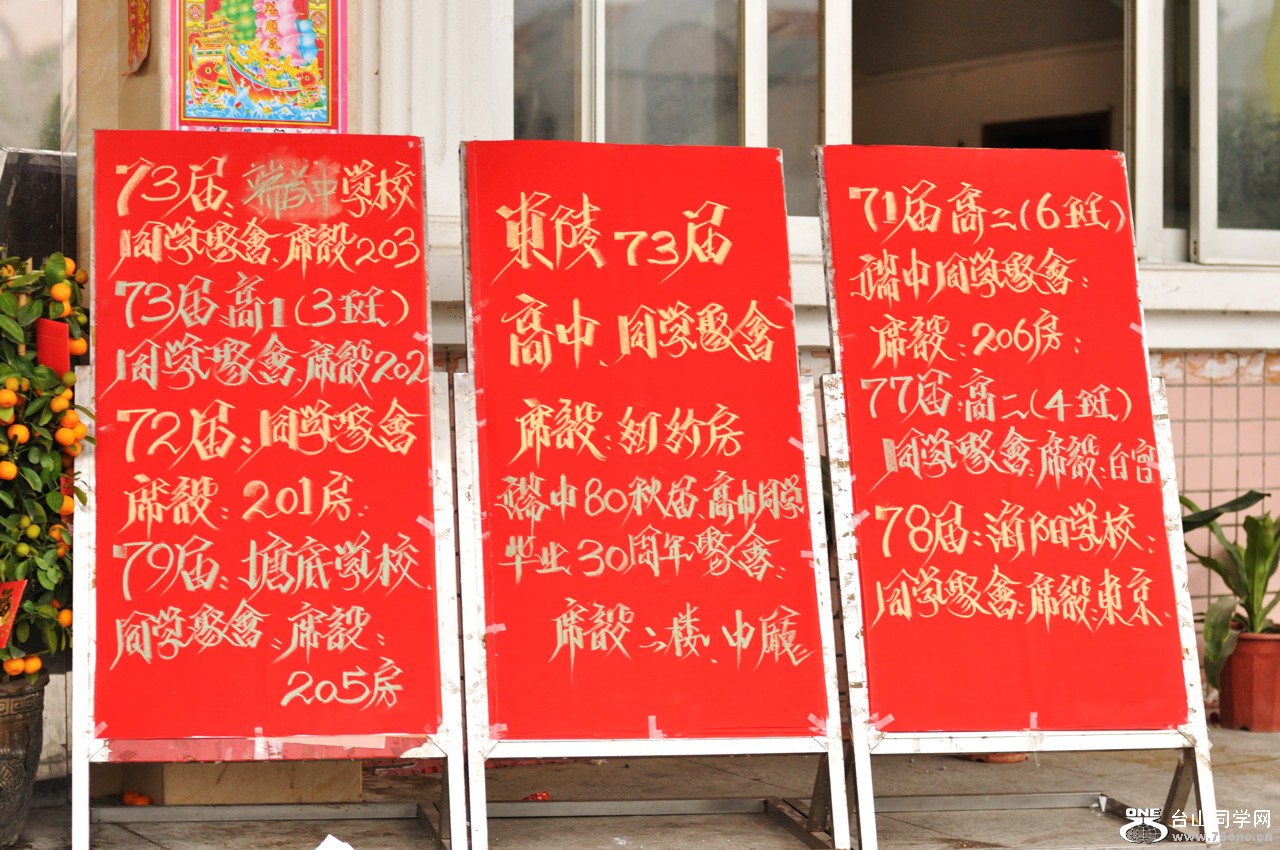 路順風
73届、端芬中学校
同学聚會.席設203
73届高1(3班)
同学聚會.席設202
72届:同学聚會
席設:201房.
79届:塘底学校
同学聚會.席設:
205房
東陵73届
高中、同学聚會
席設:房
端中80秋届.高中同学
毕业30周年聚會.
席設:二楼、中廳
71届高二(6班)
端中同学聚會:
席設:206房;
77届:高二(4班)
同学聚會:席設:白宫
78届:海阳学校:
同学聚會.席設:東京.
ONE 台山同学网
www.75one.cn